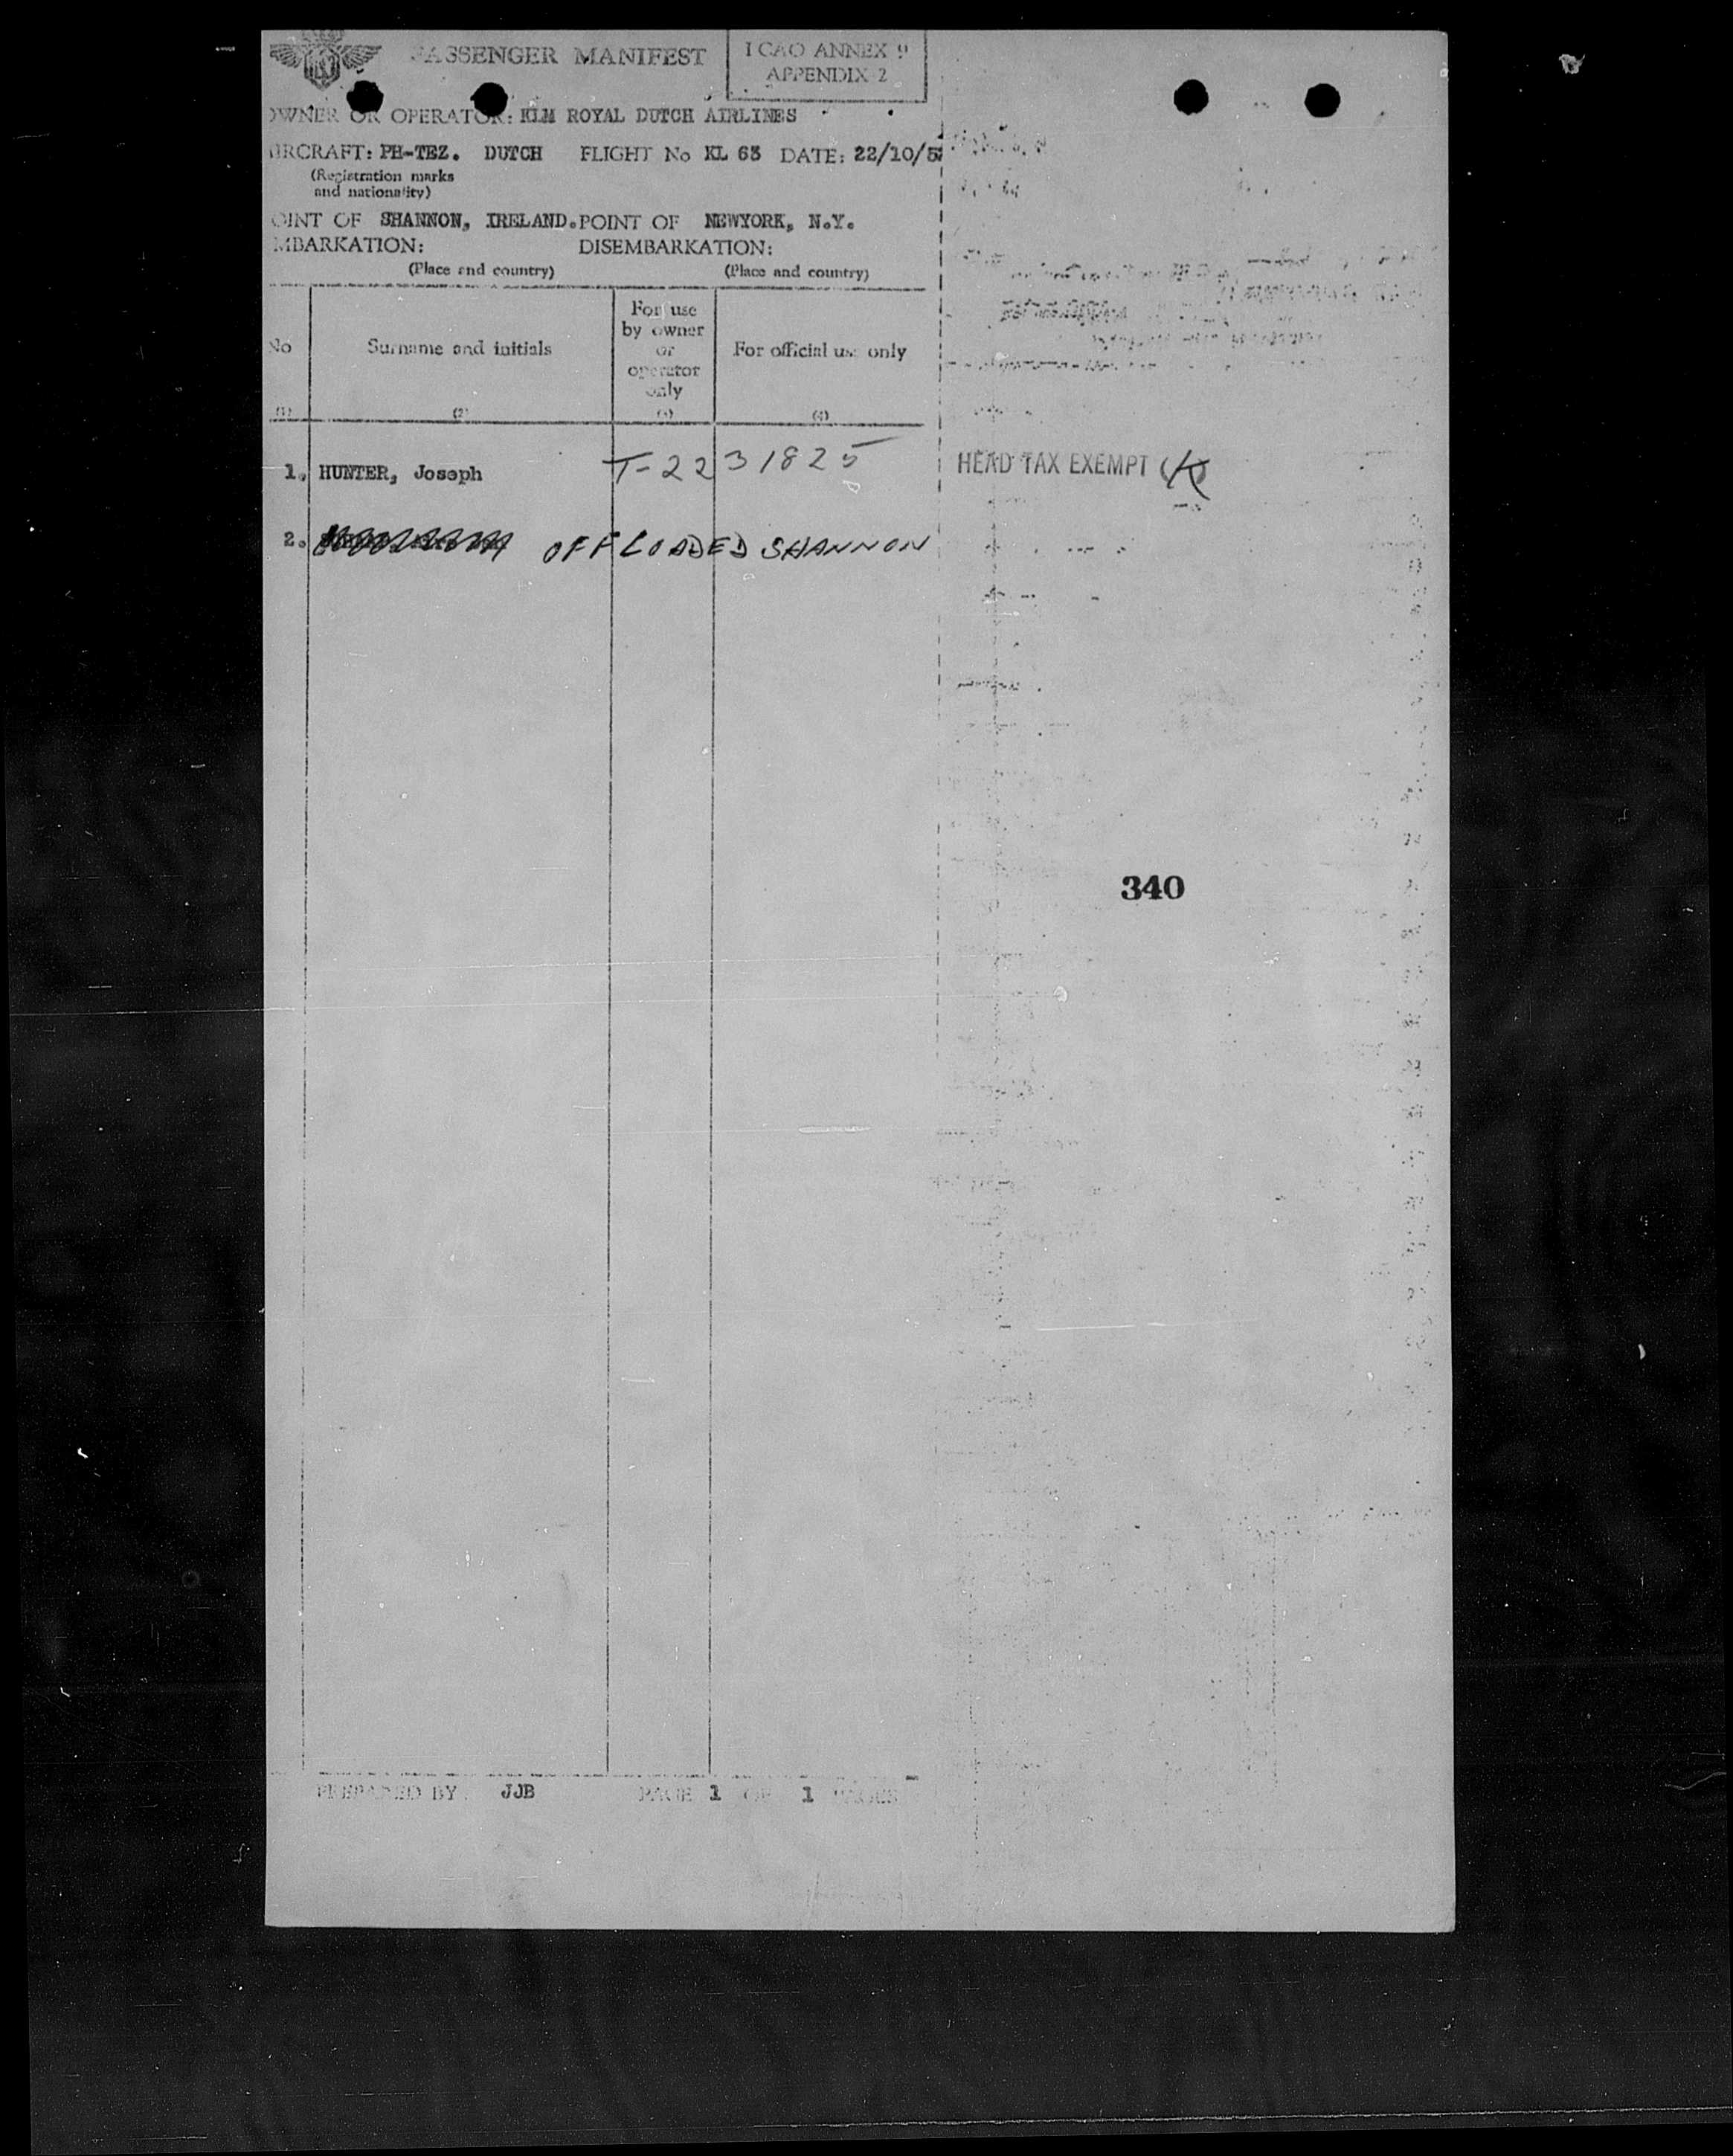 PASSENGER MANIFEST
ICAO ANNEX 9
APPENDIX 2
OWNER OR OPERATOR: KLM ROYAL DUTCH AIRLINES
AIRCRAFT: PH-TEZ. DUTCH FLIGHT No KL 63 DATE: 22/10/5
(Registration marks
and nationality)
OINT OF SHANNON, IRELAND. POINT OF NEWYORK, N.Y.
MBARKATION: DISEMBARKATION:
(Place and country) (Place and country)
No
Surname and initials
For use
by owner
or
operator
only
For official use only
(1) (2) (3) (4)
1. HUNTER, Joseph T-2231825 HEAD TAX EXEMPT (K)
2. OFFLOADED SHANNON
340
PREPARED BY JJB PAGE 1 OF 1 PAGES